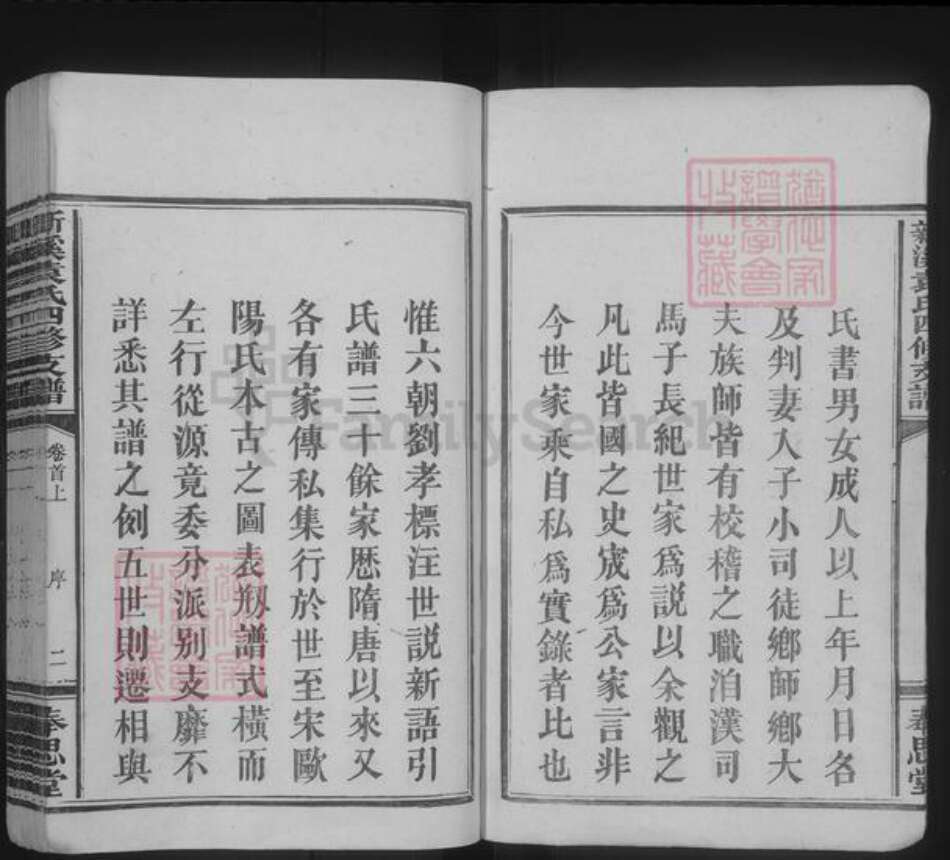 新溪袁氏四修支譜
奉思堂
氏書男女成人以上年月日名
及判妻入子小司徒鄉師鄉大
夫族師皆有校稽之職洎漢司
馬子長紀世家爲說以余觀之
凡此皆國之史宬爲公家言非
今世家乘自私爲實錄者比也
惟六朝劉孝標注世說新語引
氏譜三十餘家歷隋唐以來又
各有家傳私集行於世至宋歐
陽氏本古之圖表剏譜式橫而
左行從源竟委分派別支靡不
詳悉其譜之例五世則遷相與
新溪袁氏四修支譜
卷首上
序
二
奉思堂
FamilySearch